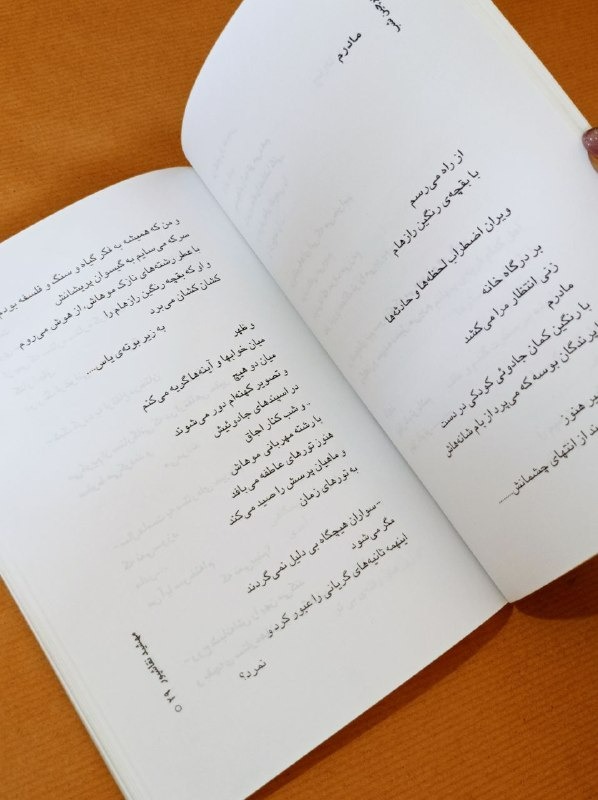 مادرم
از راه می‌رسم
با بقچه‌ی رنگین رازهام
ویران اضطراب لحظه‌ها و حادثه‌ها
بر درگاه خانه
زنی انتظار مرا می‌کشد
مادرم
با رنگین کمان جادوئی کودکی در دست
پرندگان بوسه که می‌پرد از بام شانه‌هاش
هنوز
از انتهای چشمانش......
و من که همیشه به فکر گیاه و سنگ و فلسفه بودم
سر که می‌سایم به گیسوان پریشانش
با عطر رشته‌های نازک موهاش، از هوش می‌روم
و او که بقچه رنگین رازهام را
کشان کشان می‌برد
به زیر بوته‌ی یاس....
و ظهر
میان خوابها و آینه‌ها گریه می‌کنم
میان دو هیچ
و تصویر کهنه‌ام دور می‌شوند
در اسبندهای جادوئیش
- و شب کنار اجاق
با رشته مهربانی موهاش
هنوز تورهای عاطفه می‌بافد
و ماهیان پرسش را صید می‌کند
به تورهای زمان
- سواران هیچگاه بی دلیل نمی‌گردند
مگر می‌شود
اینهمه ثانیه‌های گریانی را عبور کرد و
نمرد؟